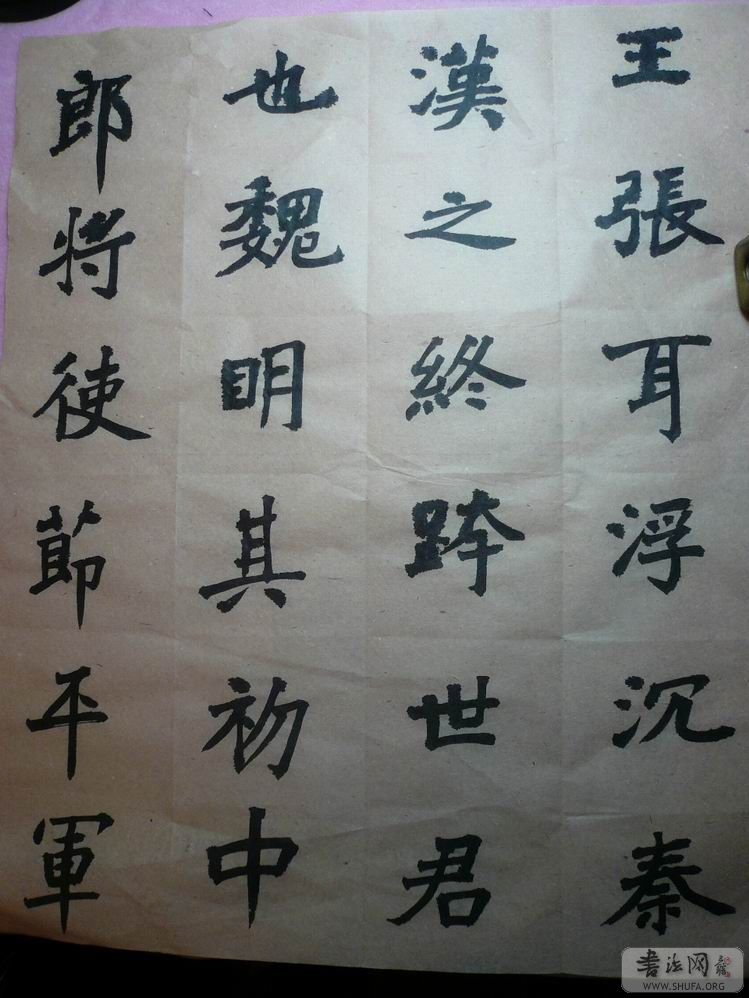 王張耳浮沉秦
漢之終跨世君
也魏明其初中
郎将使節平軍
書法网
WWW.SHUFA.ORG